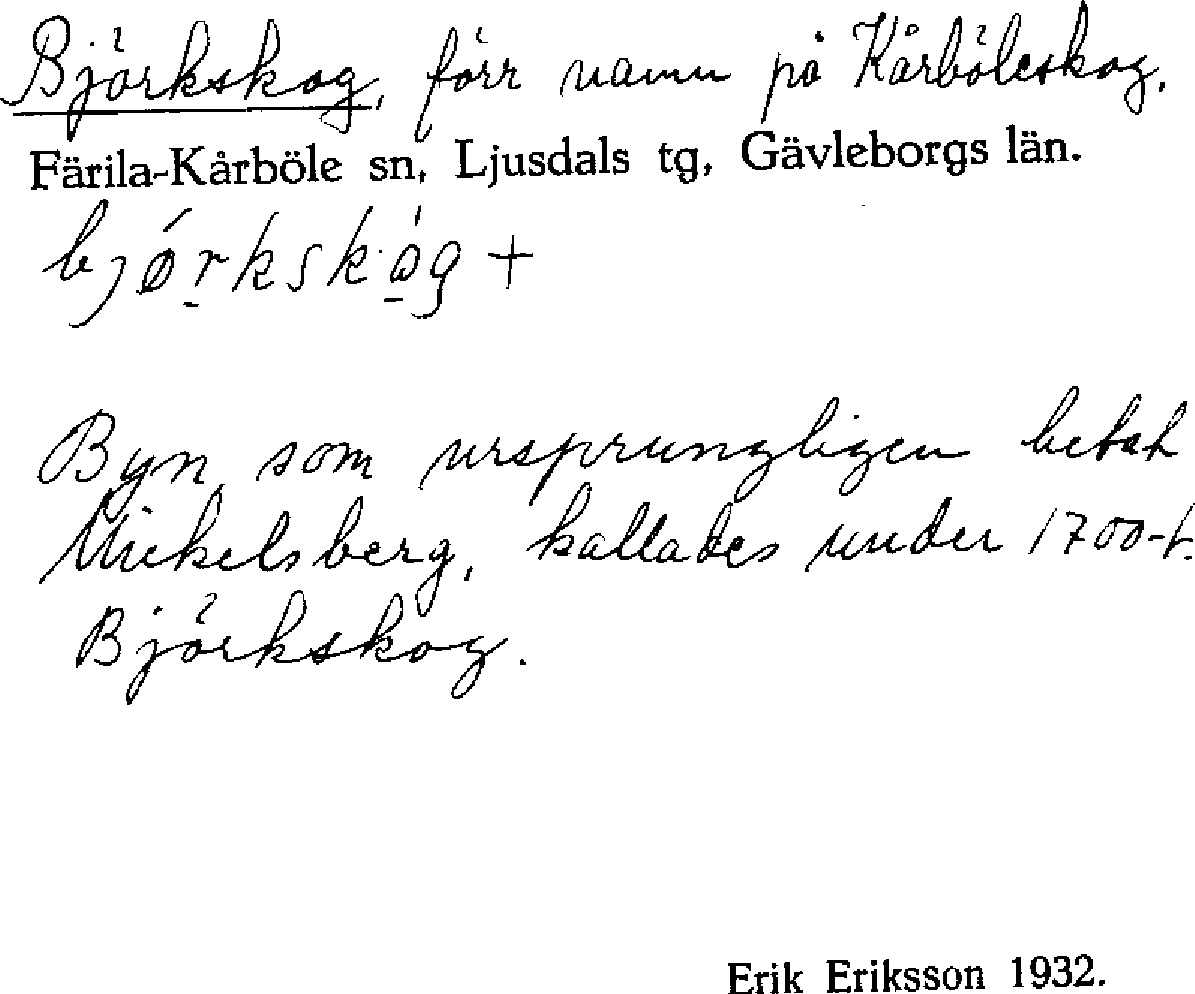 Björkskog, förr namn på Kårböleskog.
Färila-Kårböle sn, Ljusdals tg, Gävleborgs län.
bjǿrkskóg +
Byn som ursprungligen hetat
Mickelsberg, kallades under 1700-t.
Björkskog.
Erik Eriksson 1932.